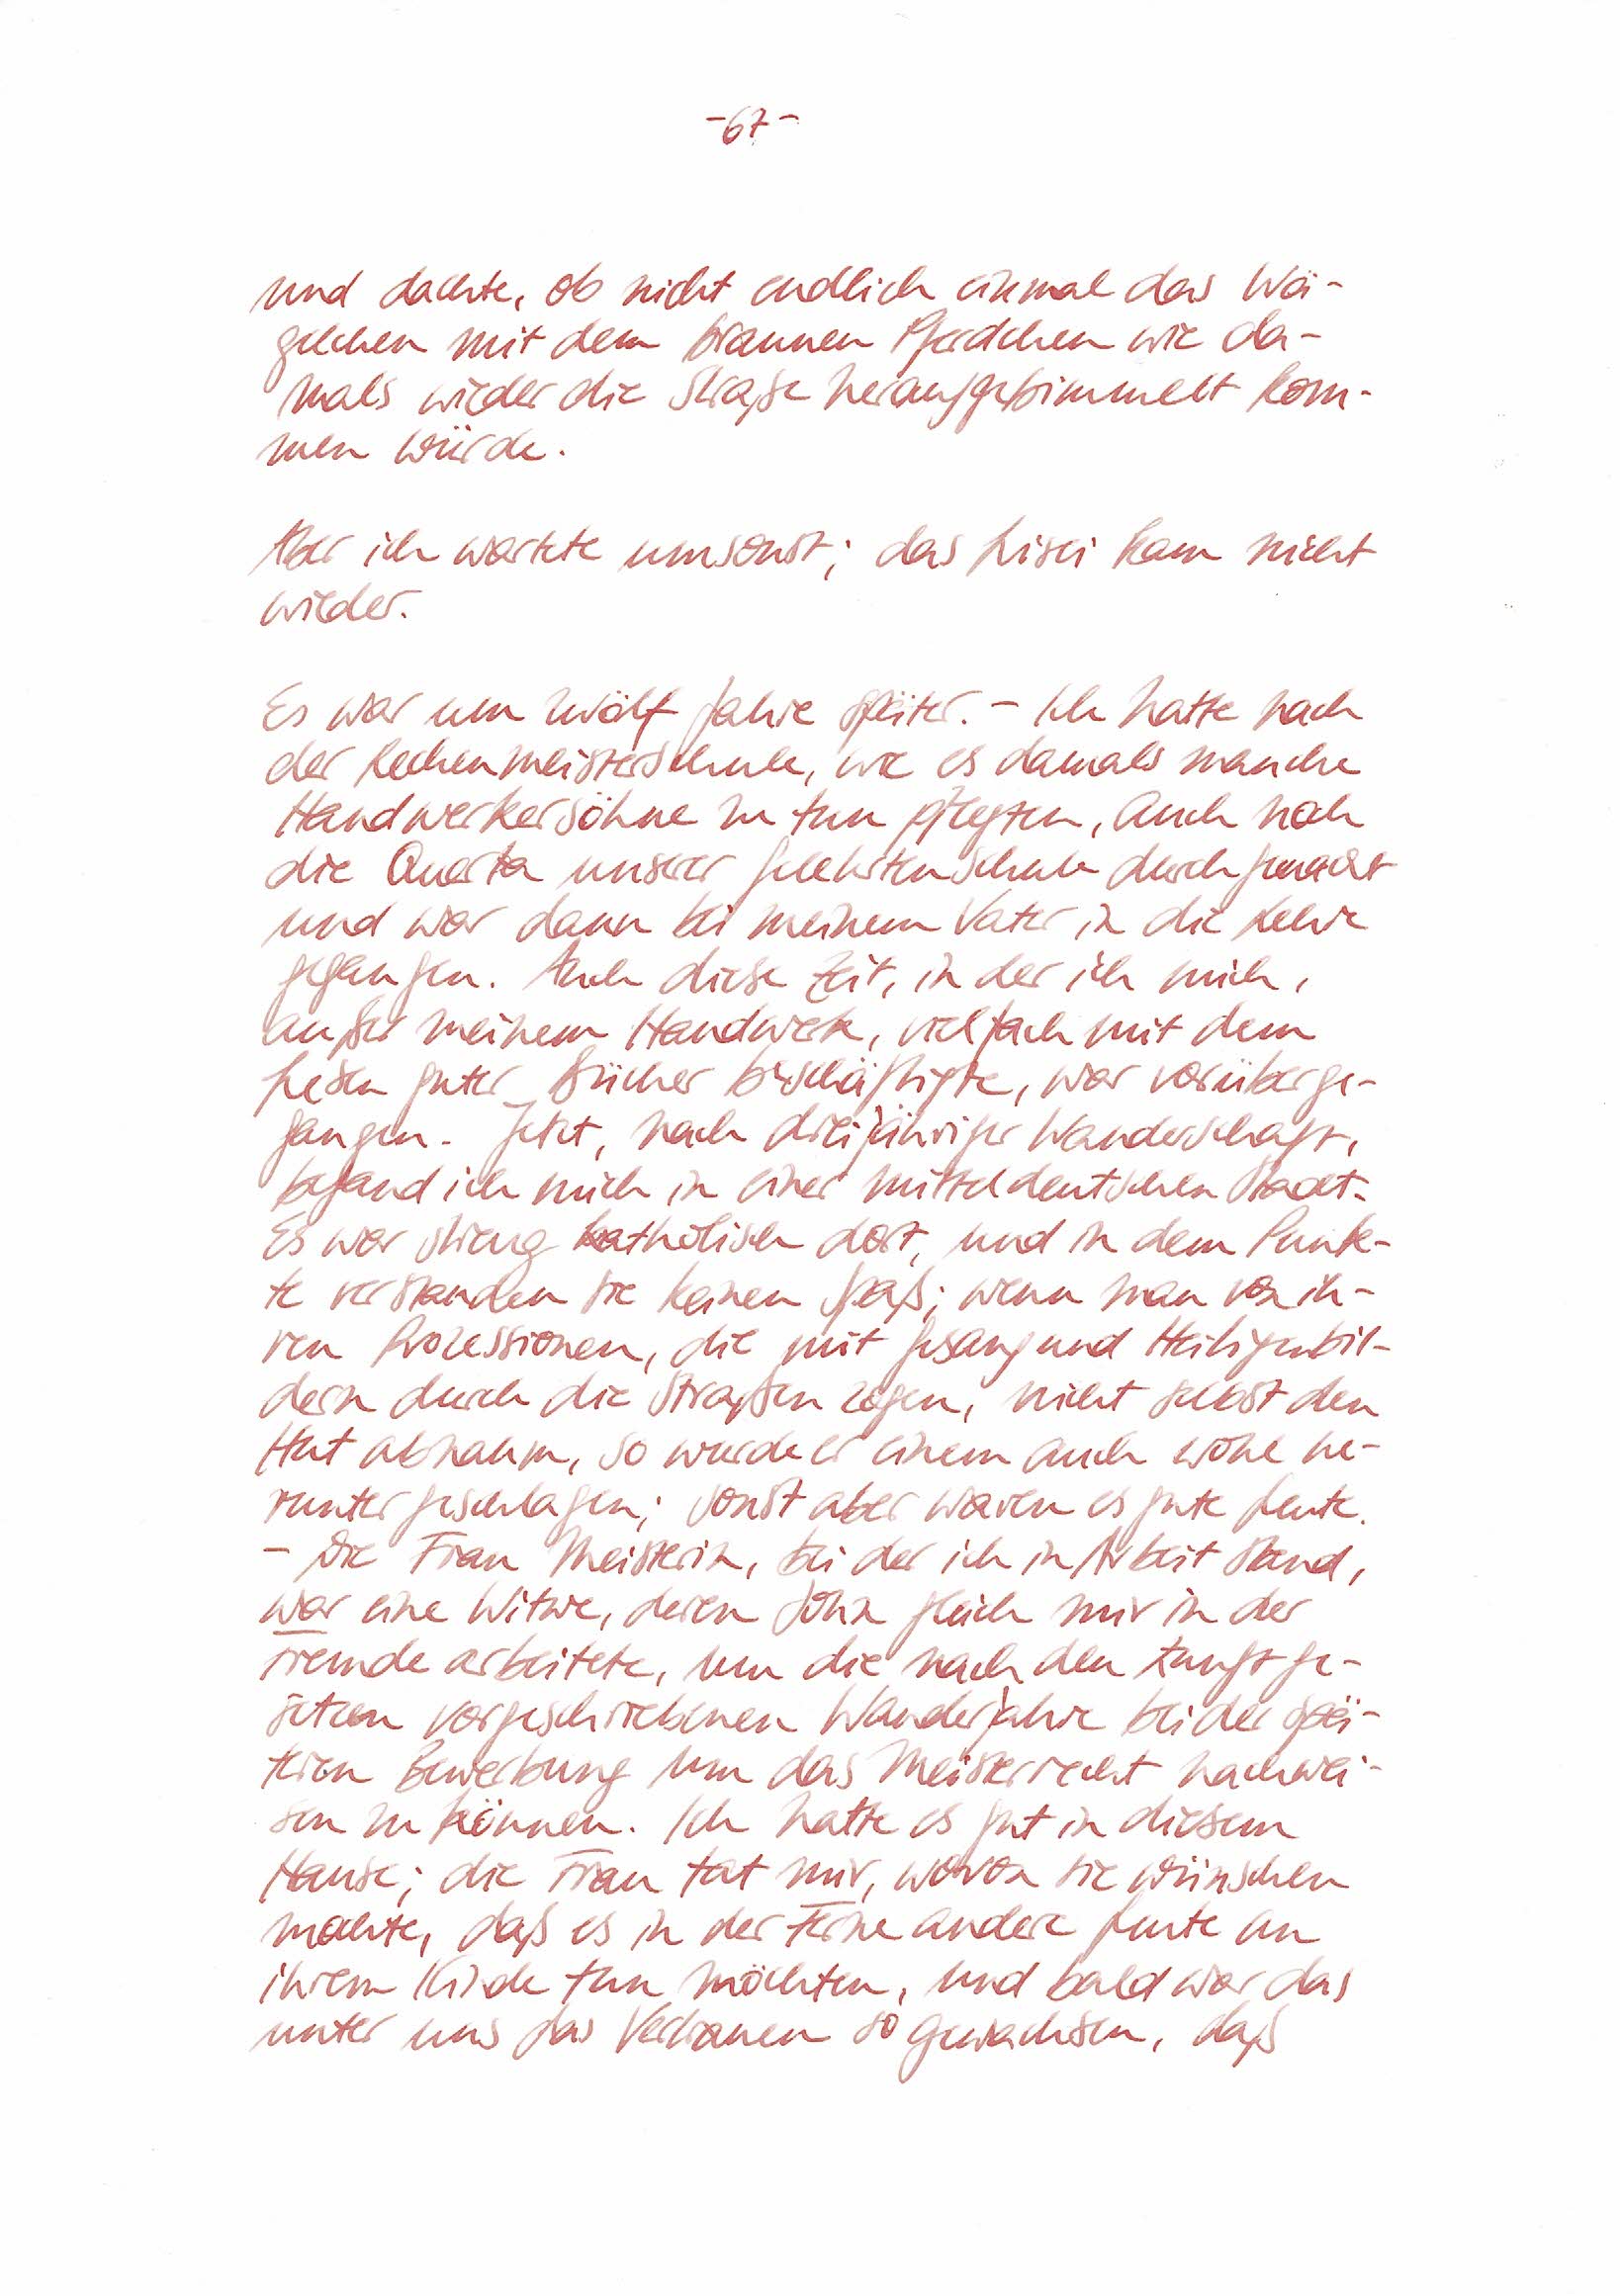 -67-
und dachte, ob nicht endlich einmal das Wä-
gelchen mit dem braunen Pferdchen wie da-
mals wieder die Straße heraufgebimmelt kom-
men würde.
Aber ich wartete umsonst; das Lisei kam nicht
wieder.
Es war um zwölf Jahre später. - Ich hatte nach
der Rechenmeisterschule, wie es damals manche
Handwerkersöhne zu tun pflegten, auch noch
die Quarta unserer Gelehrtenschule durchgemacht
und war dann bei meinem Vater in die Lehre
gegangen. Auch diese Zeit, in der ich mich,
außer meinem Handwerk, vielfach mit dem
Lesen guter Bücher beschäftigte, war vorüberge-
gangen. Jetzt, nach dreijähriger Wanderschaft,
befand ich mich in einer mitteldeutschen Stadt.
Es war streng katholisch dort, und in dem Punk-
te verstanden sie keinen Spaß; wenn man von ih-
ren Prozessionen, die mit Gesang und Heiligenbil-
dern durch die Straßen zogen, nicht selbst den
Hut abnahm, so wurde er einem auch wohl he-
runtergeschlagen; sonst aber waren es gute Leute.
- Die Frau Meisterin, bei der ich in Arbeit stand,
war eine Witwe, deren Sohn gleich mir in der
Fremde arbeitete, um die nach den Zunftge-
setzen vorgeschriebenen Wanderjahre bei der spä-
teren Bewerbung um das Meisterrecht nachwei-
sen zu können. Ich hatte es gut in diesem
Hause; die Frau tat mir, wovon sie wünschen
mochte, daß es in der Ferne andere Leute an
ihrem Kinde tun möchten, und bald war das
unter uns das Vertrauen so gewachsen, daß